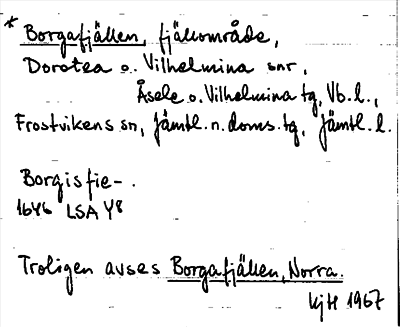 * Borgafjällen, fjällområde,
Dorotea o. Vilhelmina snr,
Åsele o. Vilhelmina tg, Vb. l.,
Frostvikens sn, Jämtl. n. doms. tg, Jämtl. l.
Borgisfie-.
1646 LSA Y8
Troligen avses Borgafjällen, Norra.
KjH 1967